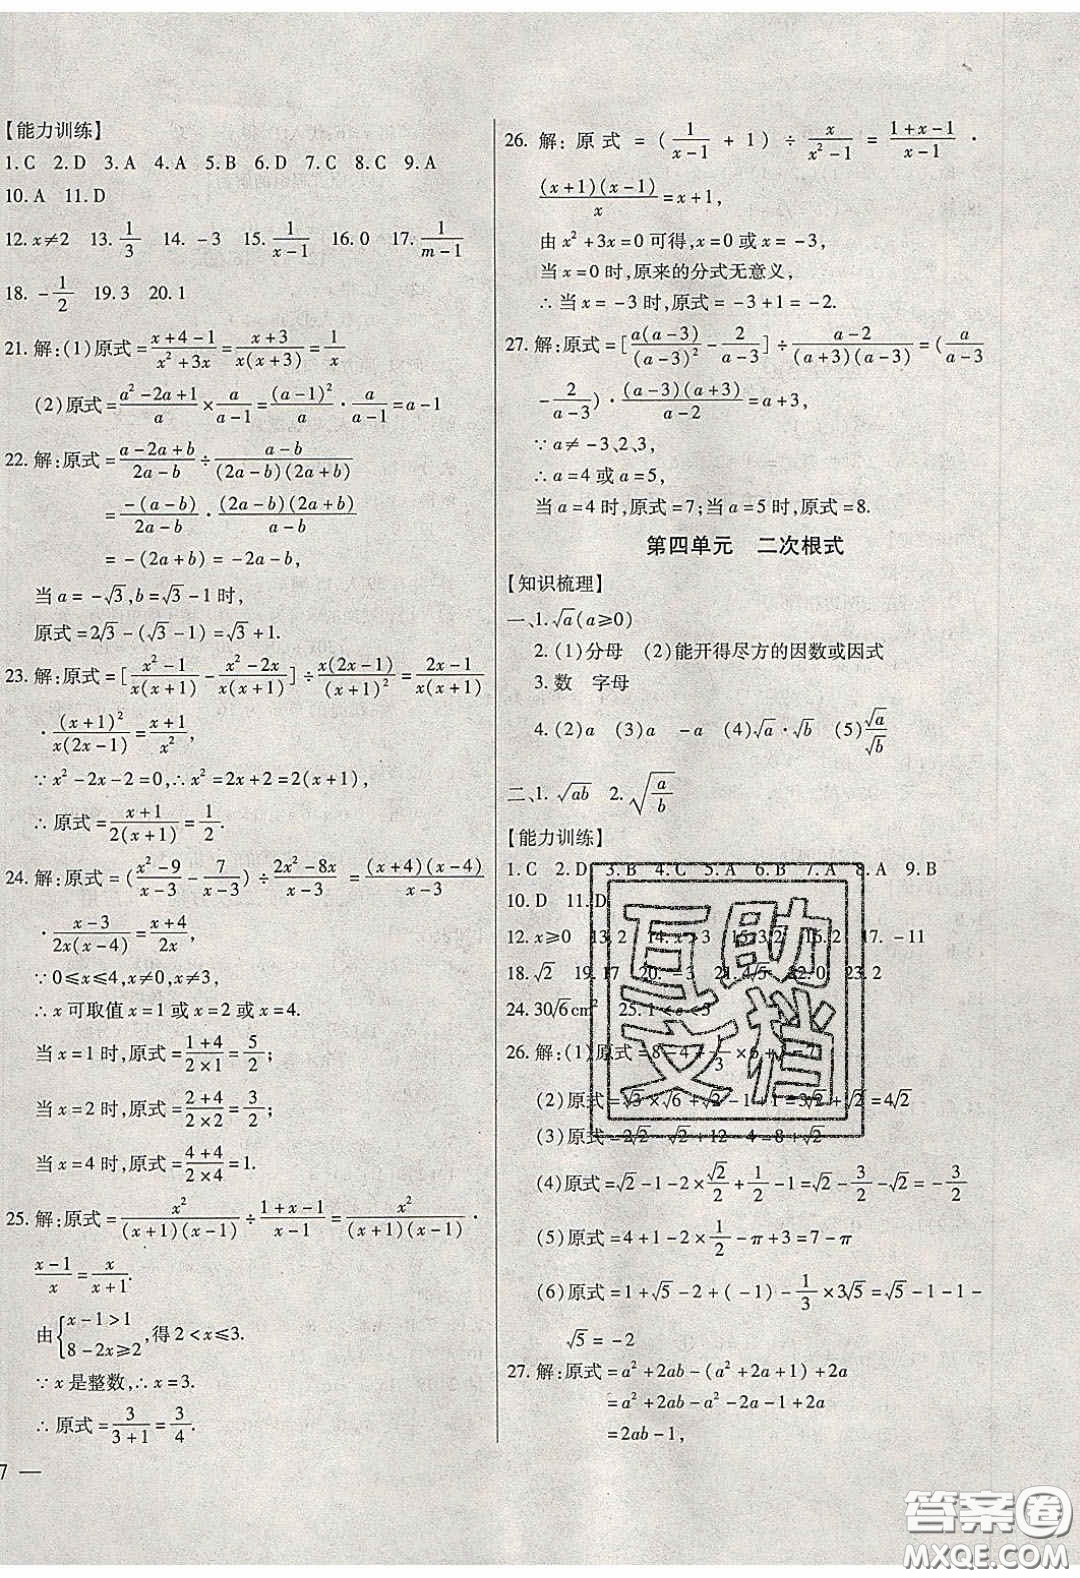 【能力训练】
1. C 2. D 3. A 4. A 5. B 6. D 7. C 8. C 9. A
10. A 11. D
12. x≠2 13. 1/3 14. -3 15. 1/(x-1) 16. 0 17. 1/(m-1)
18. -1/2 19. 3 20. 1
21. 解:(1)原式=(x+4-1)/(x²+3x)=(x+3)/(x(x+3))=1/x
(2)原式=(a²-2a+1)/a×a/(a-1)=(a-1)²/a·a/(a-1)=a-1
22. 解:原式=(a-2a+b)/(2a-b)÷(a-b)/((2a-b)(2a+b))
=-(a-b)/(2a-b)·(2a-b)(2a+b)/(a-b)
=-(2a+b)=-2a-b,
当a=-√3,b=√3-1时,
原式=2√3-(√3-1)=√3+1.
23. 解:原式=[(x²-1)/(x(x+1))-(x²-2x)/(x(x+1))]÷x(2x-1)/(x+1)²=(2x-1)/(x(x+1))
·(x+1)²/(x(2x-1))=(x+1)/x²,
∵x²-2x-2=0,∴x²=2x+2=2(x+1),
∴原式=(x+1)/(2(x+1))=1/2.
24. 解:原式=((x²-9)/(x-3)-7/(x-3))÷(2x²-8x)/(x-3)=(x+4)(x-4)/(x-3)
·(x-3)/(2x(x-4))=(x+4)/2x,
∵0≤x≤4,x≠0,x≠3,
∴x可取值x=1或x=2或x=4.
当x=1时,原式=(1+4)/(2×1)=5/2;
当x=2时,原式=(2+4)/(2×2)=3/2;
当x=4时,原式=(4+4)/(2×4)=1.
25. 解:原式=x²/((x+1)(x-1))÷(1+x-1)/(x-1)=x²/((x+1)(x-1))·
(x-1)/x=x/(x+1).
由{x-1>1 8-2x≥2,得2<x≤3.
∵x是整数,∴x=3.
∴原式=3/(3+1)=3/4.
7 —
26. 解:原式=(1/(x-1)+1)÷x/(x²-1)=(1+x-1)/(x-1)·
(x+1)(x-1)/x=x+1,
由x²+3x=0可得,x=0或x=-3,
当x=0时,原来的分式无意义,
∴当x=-3时,原式=-3+1=-2.
27. 解:原式=[a(a-3)/(a-3)²-2/(a-3)]÷(a-2)/((a+3)(a-3))=(a/(a-3)
-2/(a-3))·(a-3)(a+3)/(a-2)=a+3,
∵a≠-3、2、3,
∴a=4或a=5,
当a=4时,原式=7;当a=5时,原式=8.
第四单元 二次根式
【知识梳理】
一、1. √a(a≥0)
2. (1)分母 (2)能开得尽方的因数或因式
3. 数 字母
4. (2)a (3)a -a (4)√a·√b (5)√a/√b
二、1. √ab 2. √(a/b)
【能力训练】
1. C 2. D 3. B 4. C 5. A 6. B 7. A 8. A 9. B
10. D 11. D
12. x≥0 13. 2 14. x>3 15. 3.2 16. 2 17. -11
18. √2 19. 17 20. -3 21. 4√5 22. 0 23. 2
24. 30√6cm² 25. 1<a<3
26. 解:(1)原式=8-4+1/3×6+
(2)原式=√3×√6+√2-1+1=3√2+√2=4√2
(3)原式=2√2 √2+12-4=8+√2
(4)原式=√2-1-2×√2/2+1/2-1=√2-3/2-√2=-3/2
(5)原式=4+1-2×1/2-π+3=7-π
(6)原式=1+√5-2+(-1)-1/3×3√5=√5-1-1-
√5=-2
27. 解:原式=a²+2ab-(a²+2a+1)+2a
=a²+2ab-a²-2a-1+2a
=2ab-1,
互助
文档
答案圈
MXQE.COM